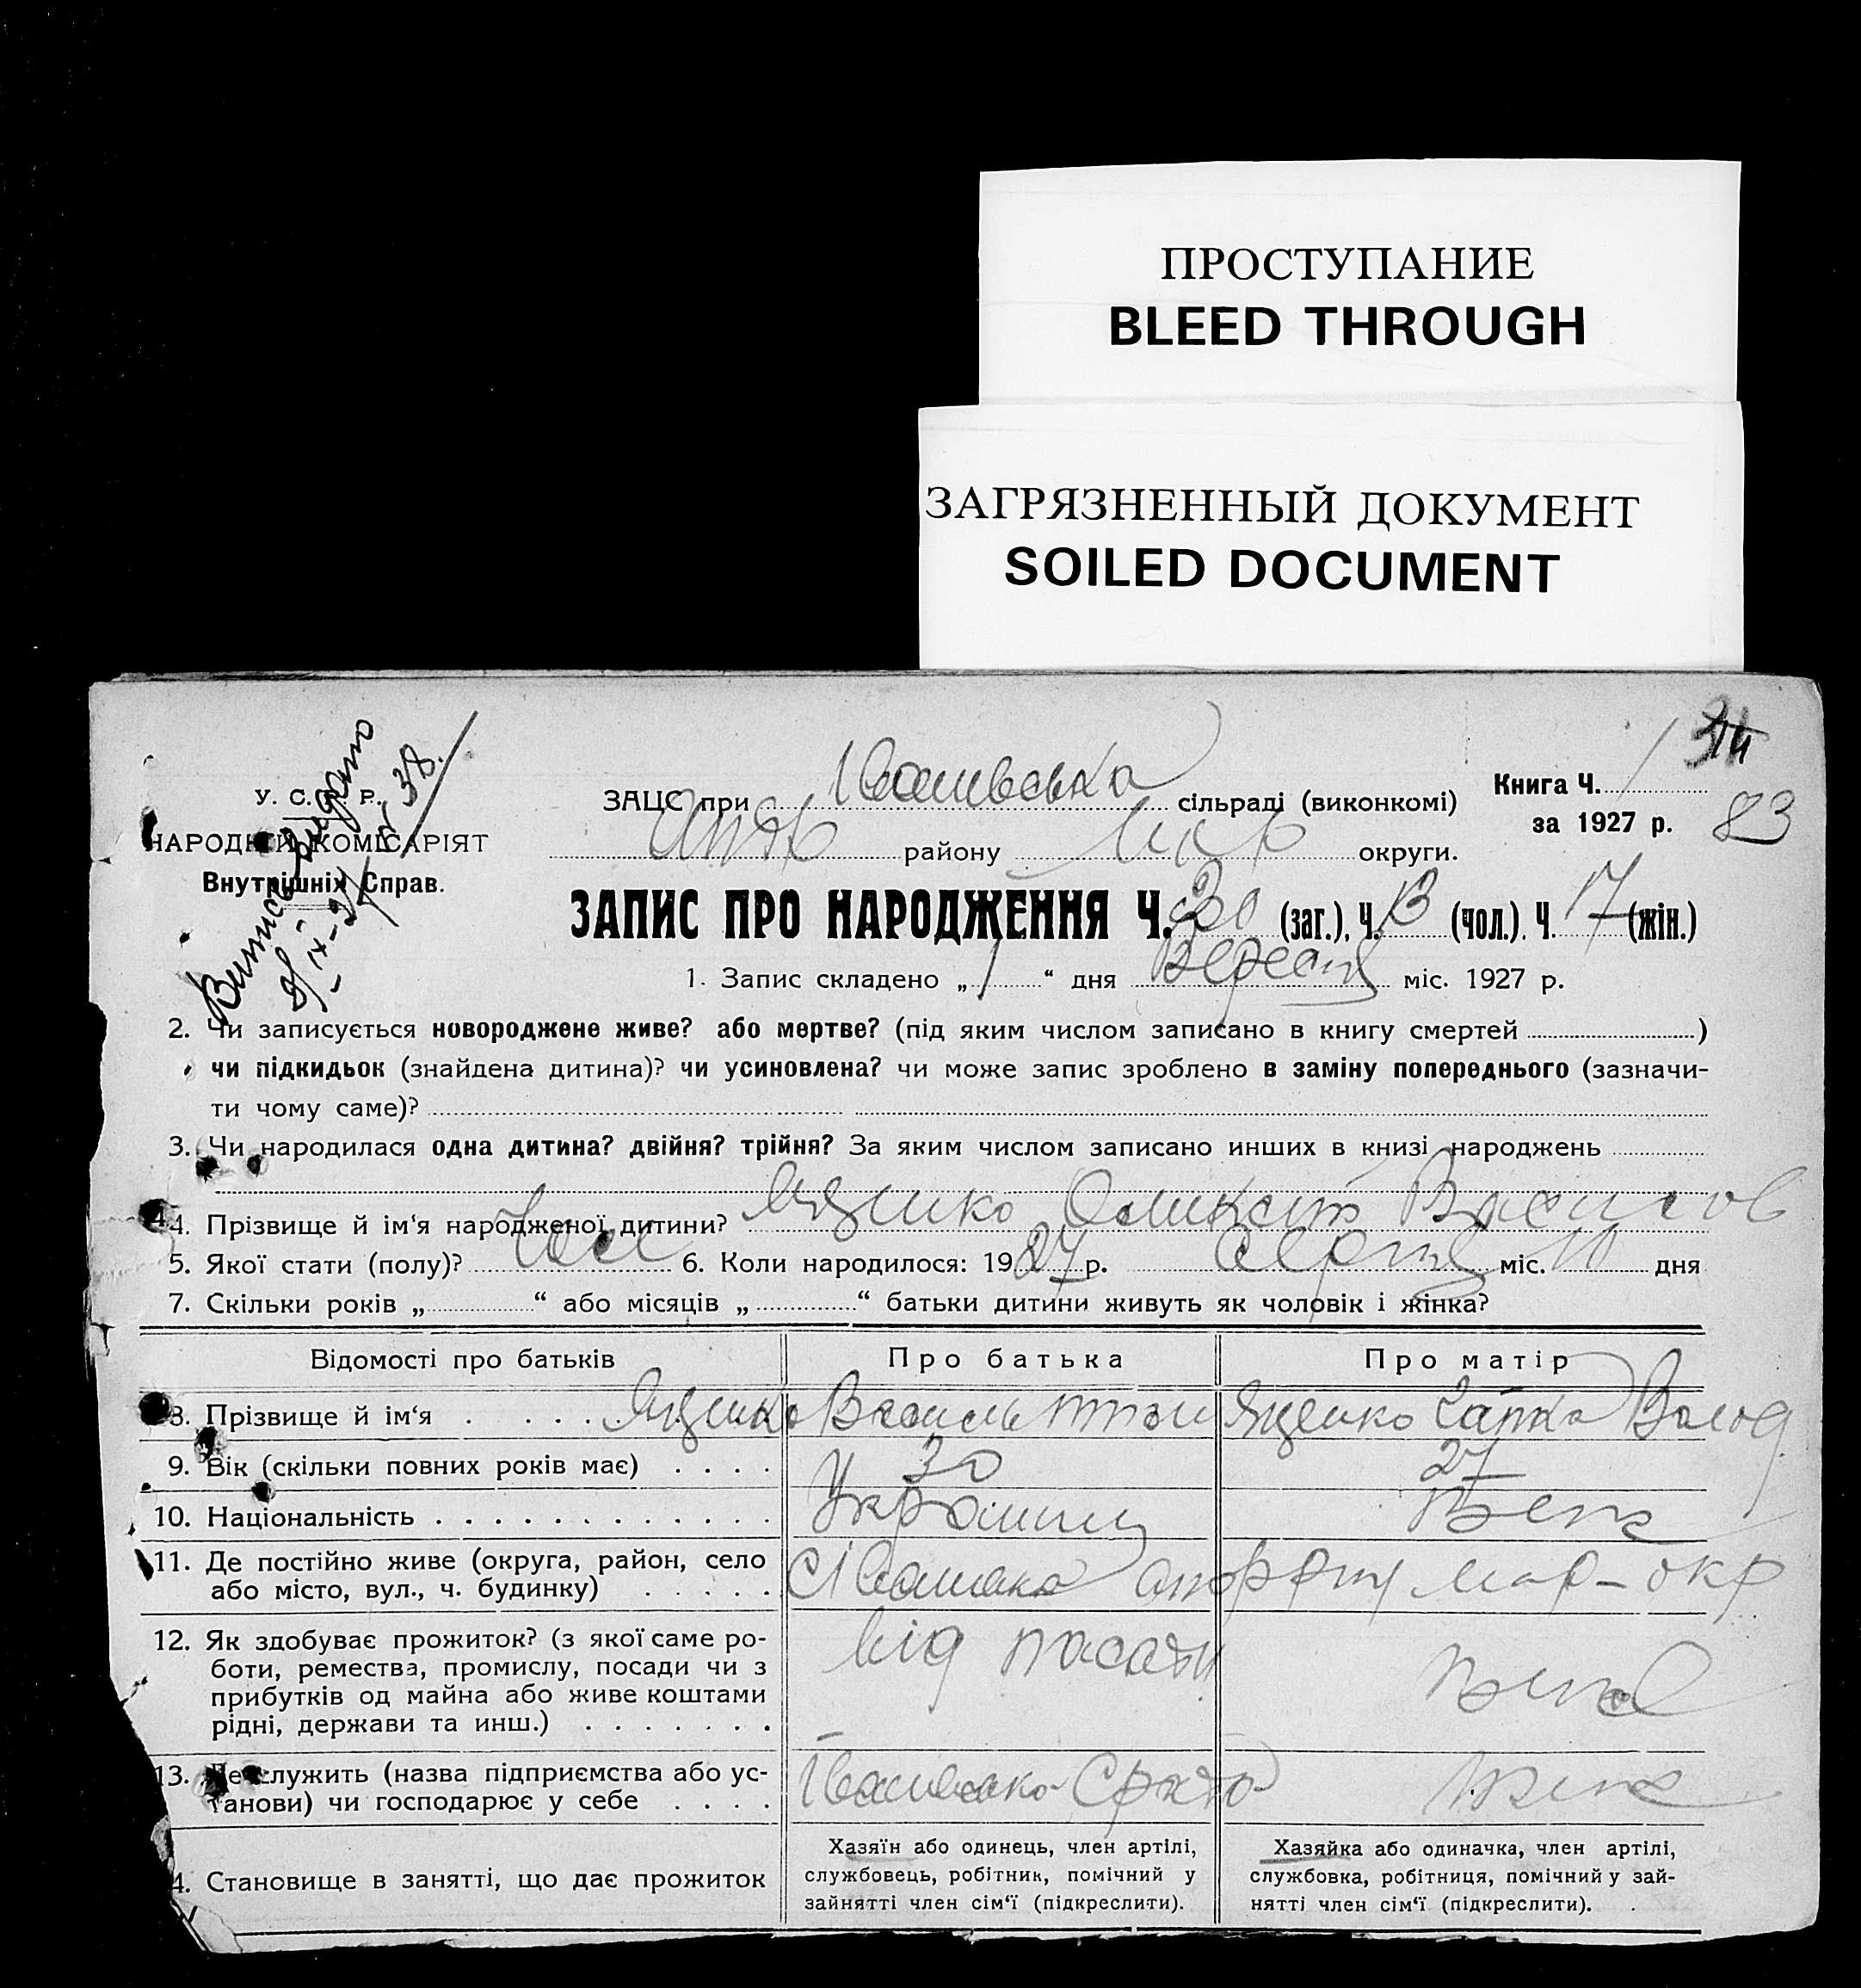 ПРОСТУПАНИЕ
BLEED THROUGH
ЗАГРЯЗНЕННЫЙ ДОКУМЕНТ
SOILED DOCUMENT
Витяг видано
У. С. Р. Р.
НАРОДНІЙ КОМІСАРІЯТ
Внутрішніх Справ.
ЗАЦС при сільраді (виконкомі)
Книга Ч. 1
за 1927 р.
83
району округи.
ЗАПИС ПРО НАРОДЖЕННЯ Ч. 30 (заг.), Ч. 13 (чол.). Ч. 17 (жін.)
1. Запис складено „ 1 “ дня міс. 1927 р.
2. Чи записується новороджене живе? або мертве? (під яким числом записано в книгу смертей )
чи підкидьок (знайдена дитина)? чи усиновлена? чи може запис зроблено в заміну попереднього (зазначи-
ти чому саме)?
3. Чи народилася одна дитина? двійня? трійня? За яким числом записано инших в книзі народжень
4. Прізвище й ім‘я народженої дитини? Яценко
5. Якої стати (полу)? 6. Коли народилося: 1927 р. міс. дня
7. Скільки років „ “ або місяців „ “ батьки дитини живуть як чоловік і жінка?
Відомості про батьків Про батька Про матір
8. Прізвище й ім‘я Яценко Василь Яценко Волод
9. Вік (скільки повних років має) 30 27
10. Національність Українец
11. Де постійно живе (округа, район, село
або місто, вул., ч. будинку)
12. Як здобуває прожиток? (з якої саме ро-
боти, ремества, промислу, посади чи з
прибутків од майна або живе коштами
рідні, держави та инш.)
від посади
13. Де служить (назва підприємства або ус-
танови) чи господарює у себе
14. Становище в занятті, що дає прожиток
Хазяїн або одинець, член артілі,
службовець, робітник, помічний у
зайнятті член сім‘ї (підкреслити).
Хазяйка або одиначка, член артілі,
службовка, робітниця, помічний у зай-
нятті член сім‘ї (підкреслити).